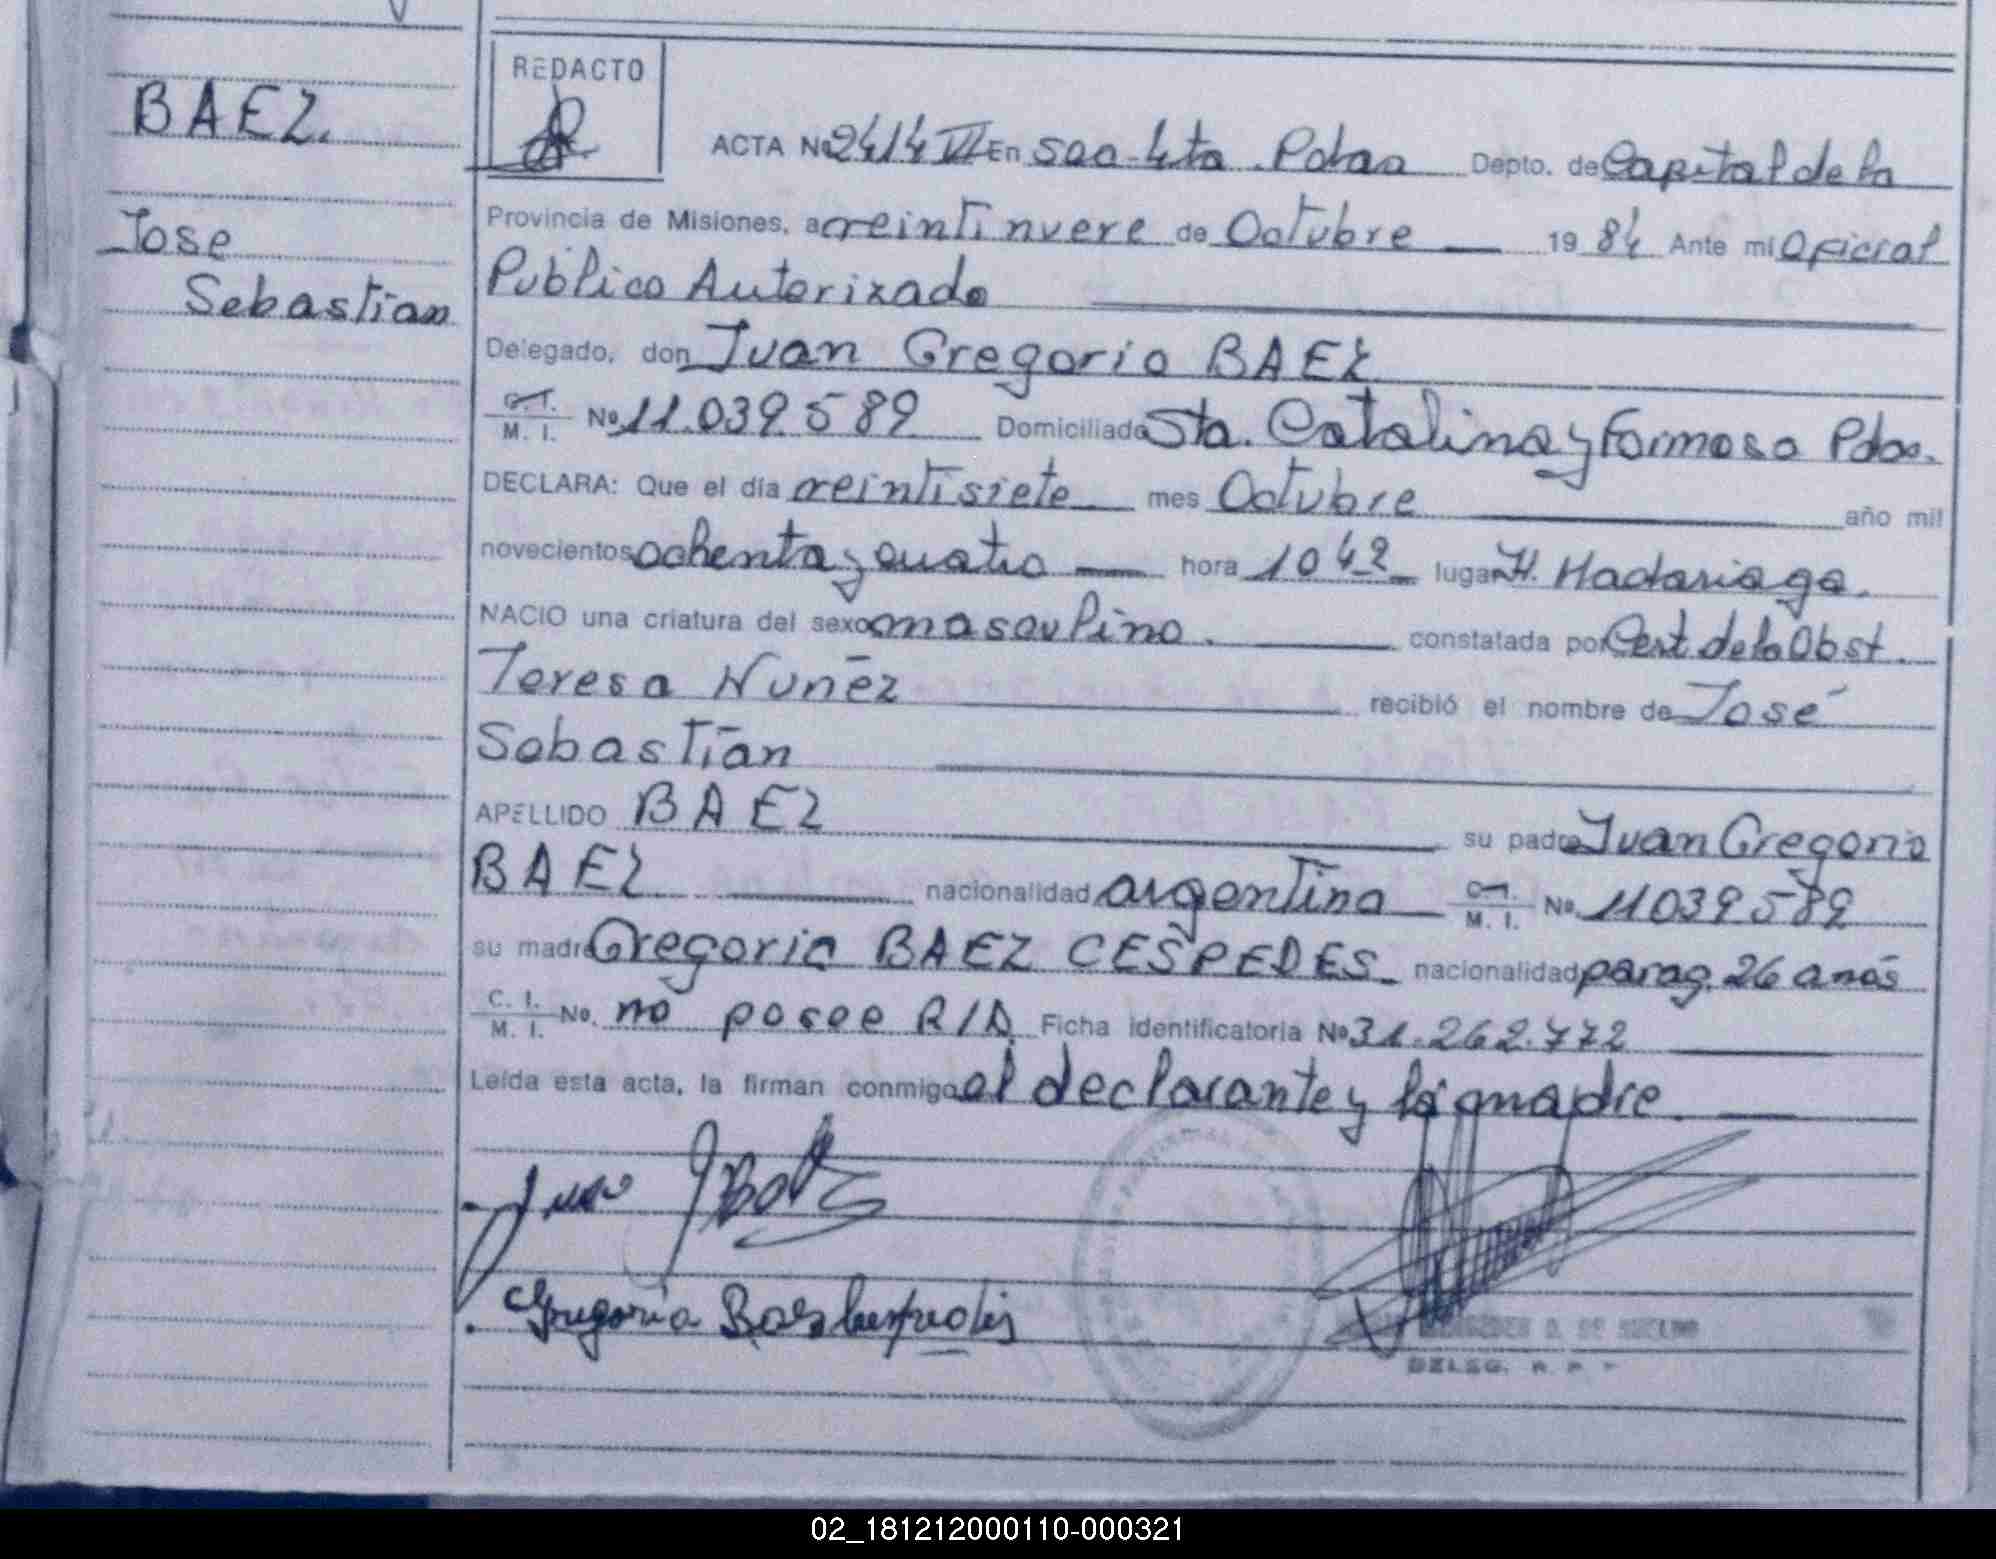 BAEZ.
Jose
Sebastian
REDACTO
ACTA Nº 2414 VI En Secc. 4ta. Pdas Depto. de Capital de la
Provincia de Misiones, a veintinueve de Octubre 19 84 Ante mi Oficial
Público Autorizado
Delegado, don Juan Gregorio BAEZ
C. I. M. I. Nº 11.039.589 Domiciliado Sta. Catalina y Formosa Pdas.
DECLARA: Que el día veintisiete mes Octubre año mil
novecientos ochenta y cuatro hora 10 42 lugar H. Madariaga.
NACIO una criatura del sexo masculino. constatada por Cert. de la Obst.
Teresa Nuñez recibió el nombre de José
Sebastián
APELLIDO BAEZ su padre Juan Gregorio
BAEZ nacionalidad argentina C. I. M. I. Nº 11039589
su madre Gregoria BAEZ CESPEDES nacionalidad parag. 26 años
C. I. M. I. No. no posee R/D. Ficha Identificatoria Nº 31.262.772
Leída esta acta, la firman conmigo el declarante y la madre.
Juan
Gregoria Baez Cespedes
DELEG. R. P.
02_181212000110-000321